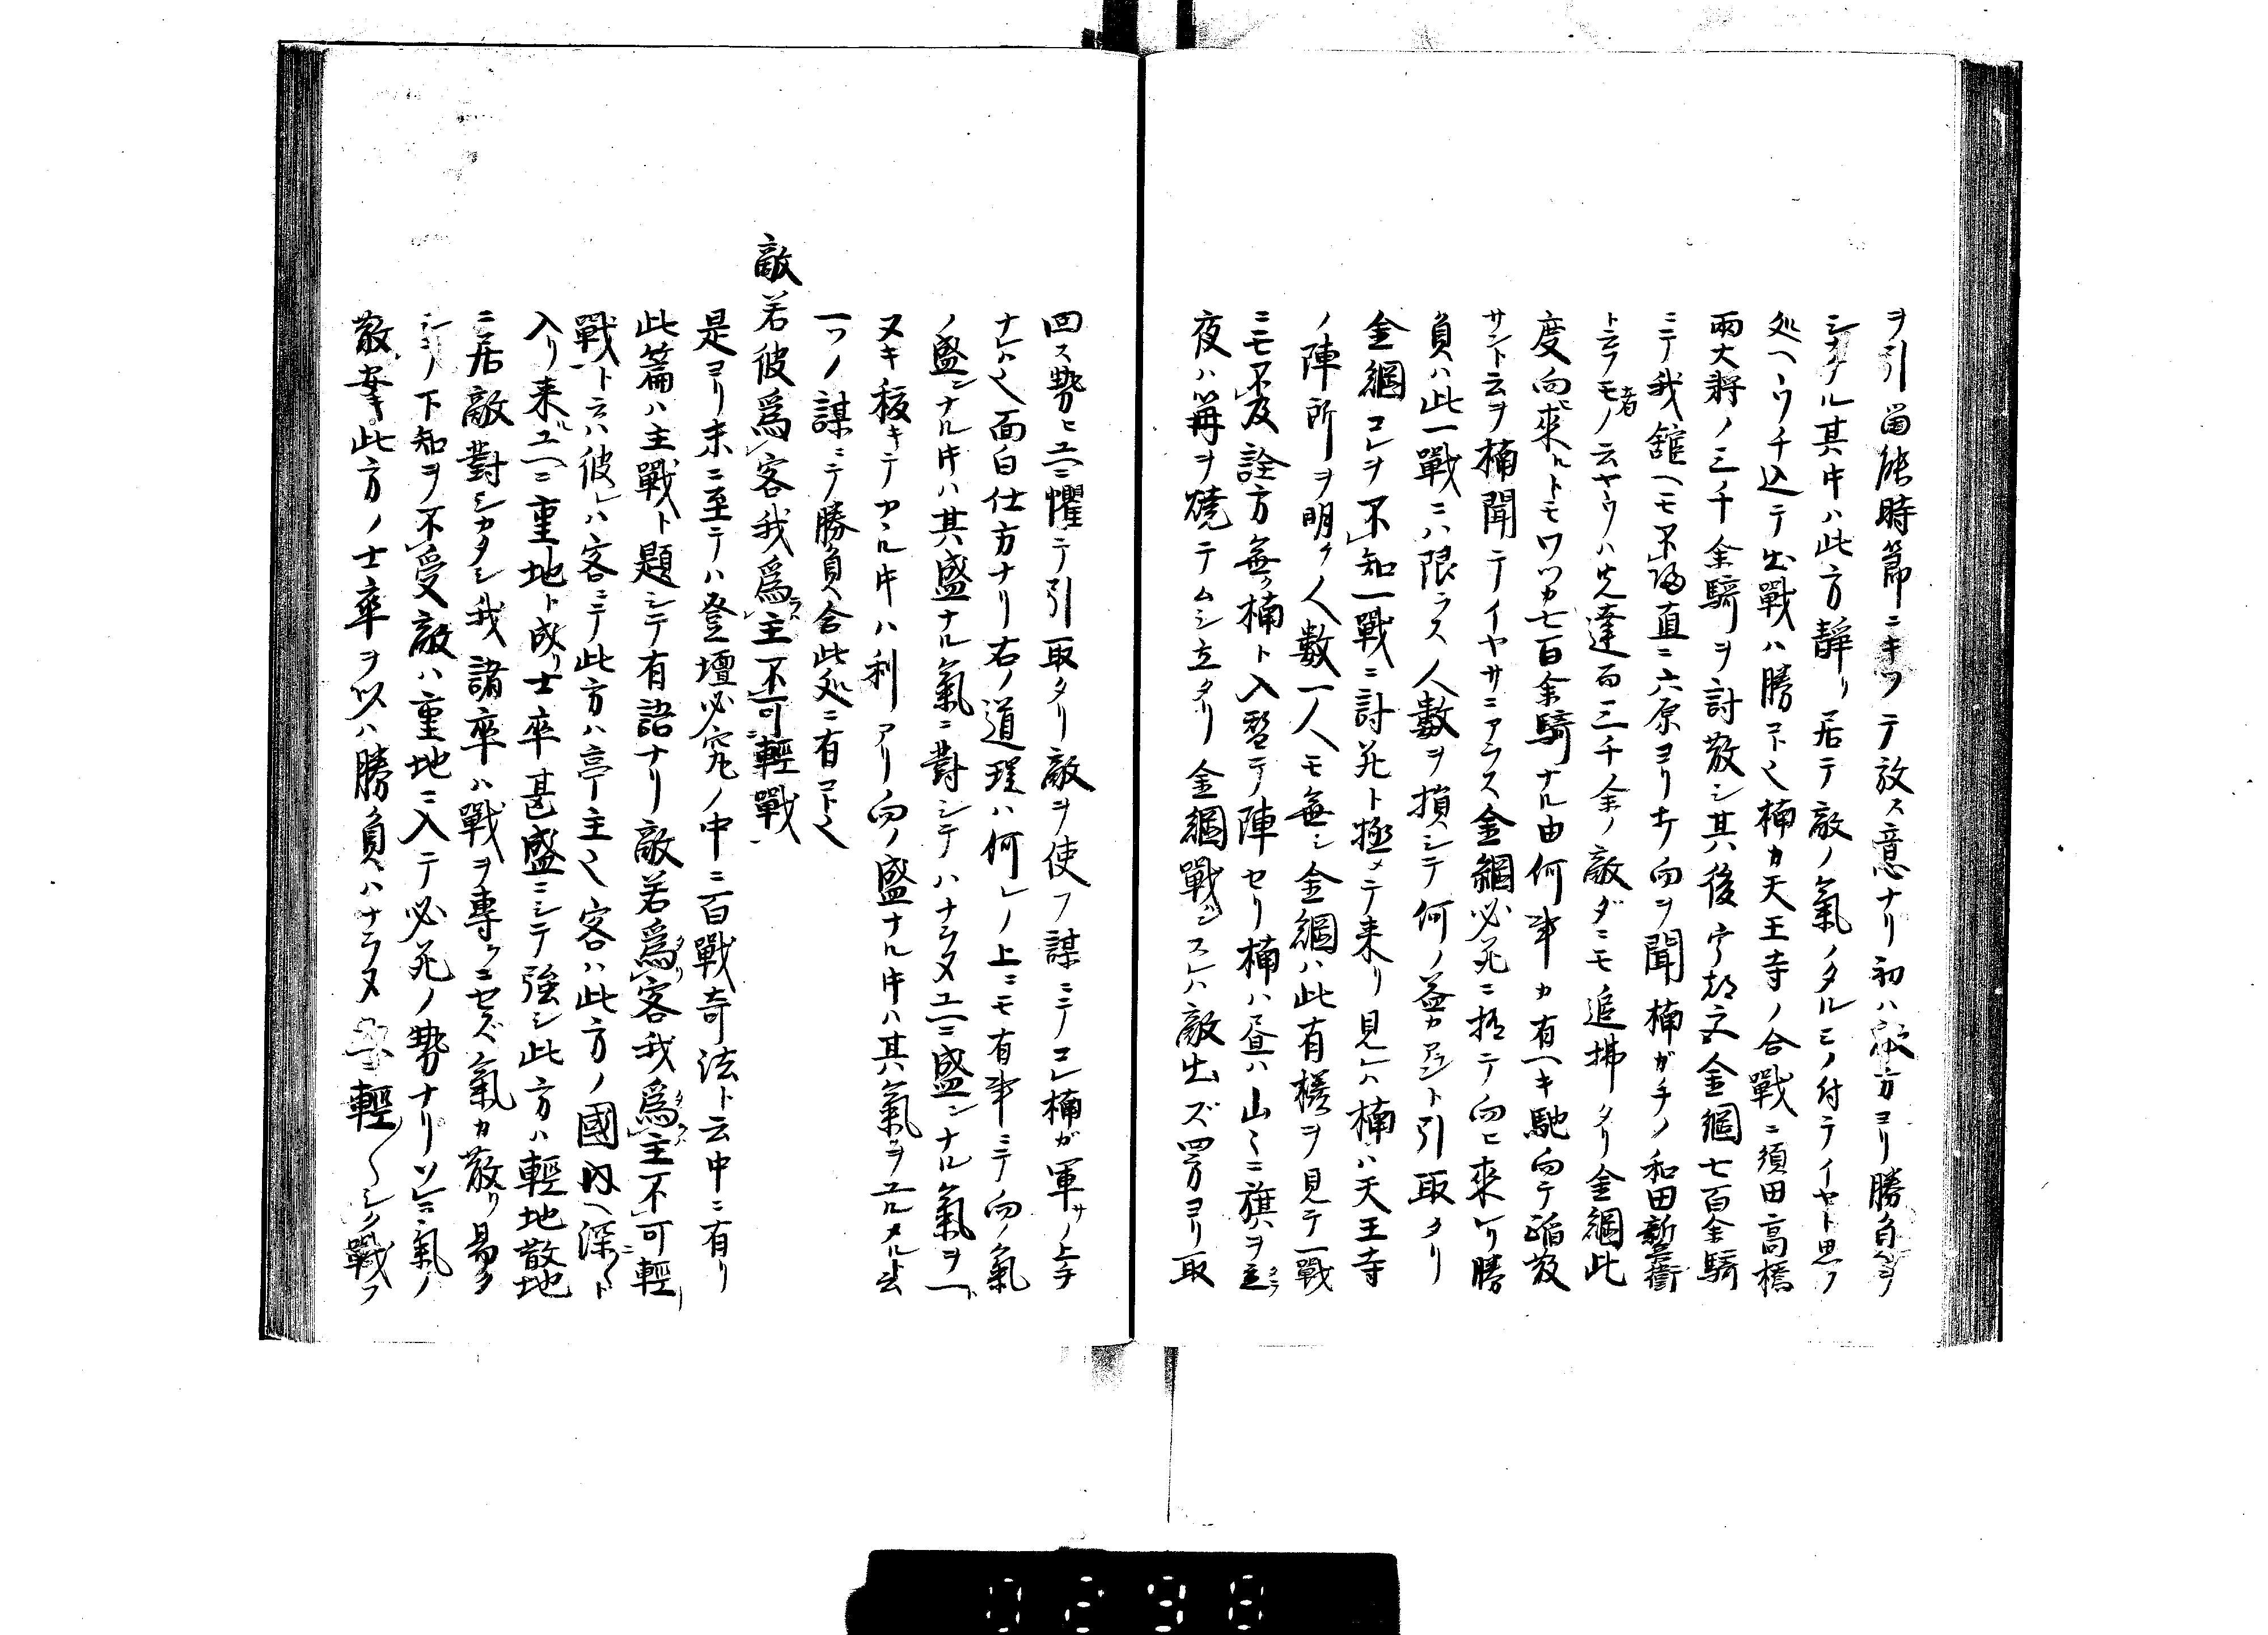 ヲ引留能時節ニキツテ放ス意ナリ初ハ敵方ヨリ勝負ヲ
シタクル其时ハ此方靜リ居テ敵ノ氣ノタルミノ付テイヤト思フ
処ヘウチ込テ出戰ハ勝コト也楠カ天王寺ノ合戰ニ須田高橋
兩大将ノ三千余騎ヲ討散シ其後宇都宮金綱七百余騎
ニテ我舘ヘモ不帰直ニ六原ヨリ向ヲ聞楠ガ手ノ和田新兵衛
ト云フモノ者云ヤウハ先達而三千余ノ敵ダニモ追拂タリ金綱此
度向来ルトモワツカ七百余騎ナル由何事カ有ヘキ馳向テ追散
サント云ヲ楠聞テイヤサニアラス金綱必死ニ極テ向ヒ来ケリ勝
負ハ此一戰ニハ限ラス人數ヲ損シテ何ノ益カアラント引取タリ
金綱コレヲ不知一戰ニ討死ト極メテ来リ見レハ楠ハ天王寺
ノ陣所ヲ明ケ人數一人モ無シ金綱ハ此有様ヲ見テ一戰
ニモ不及詮方無ク楠ト入替テ陣セリ楠ハ昼ハ山々ニ旗ヲ立
夜ハ篝ヲ焼テムシ立タリ金綱戰ントスレハ敵出ズ四方ヨリ取
回ス勢ヒユヘニ懼テ引取タリ敵ヲ使フ謀ニテノコレ楠ガ軍サノ上手
ナレハ也面白仕方ナリ右ノ道理ハ何レノ上ニモ有事ニテ向ノ氣
ノ盛ンナル时ハ其盛ナル氣ニ對シテハナラヌユヘニ盛ンナル氣ヲ一ト
ヌキ抜キテカヽル时ハ利アリ向ノ盛ナル时ハ其氣ヲユルメル法
一ツノ謀ニテ勝負合此処ニ有コト也
敵若彼爲客我爲主不可輕戰
是ヨリ末ニ至テハ登壇必究ノ中ニ百戰奇法ト云中ニ有リ
此篇ハ主戰ト題シテ有語ナリ敵若爲客我爲主不可輕
戰ト云ハ彼レハ客ニテ此方ハ亭主也客ハ此方ノ國内ヘ深々ト
入リ来ルユヘニ重地ト成リ士卒甚盛ニシテ強シ此方ハ輕地散地
ニ居敵對シカタシ我諸卒ハ戰ヲ專ラニセズ氣カ散リ易ク
シテノ下知ヲ不受敵ハ重地ニ入テ必死ノ勢ナリソレニ氣ノ
散安キ此方ノ士卒ヲ以ハ勝負ハナラヌ輕〱シク戰フ